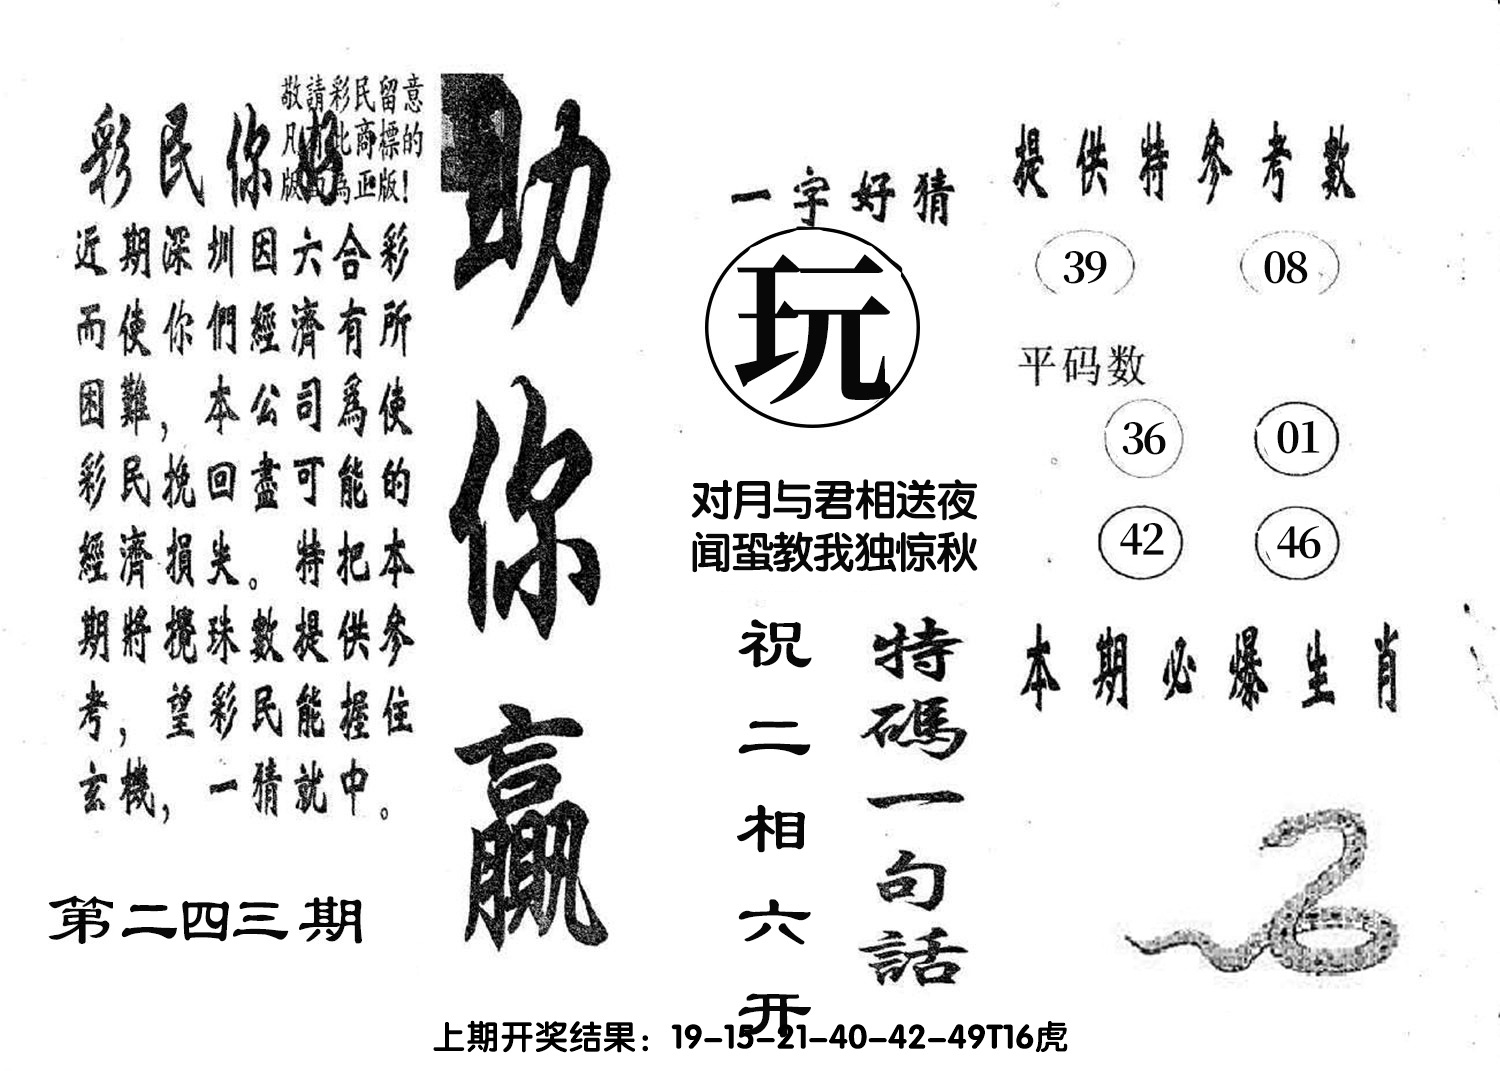 敬請彩民留意
凡有此商標的
版面為正版!
彩民你好
近期深圳因六合彩
而使你們經濟有所
困難，本公司爲使
彩民挽回盡可能的
經濟損失。特把本
期將攪珠數提供參
考，望彩民能握住
玄機，一猜就中。
第二四三期
助你贏
一字好猜
玩
对月与君相送夜
闻蛩教我独惊秋
特碼一句話
祝二相六开
提供特參考數
39 08
平码数
36 01
42 46
本期必爆生肖
上期开奖结果：19-15-21-40-42-49T16虎